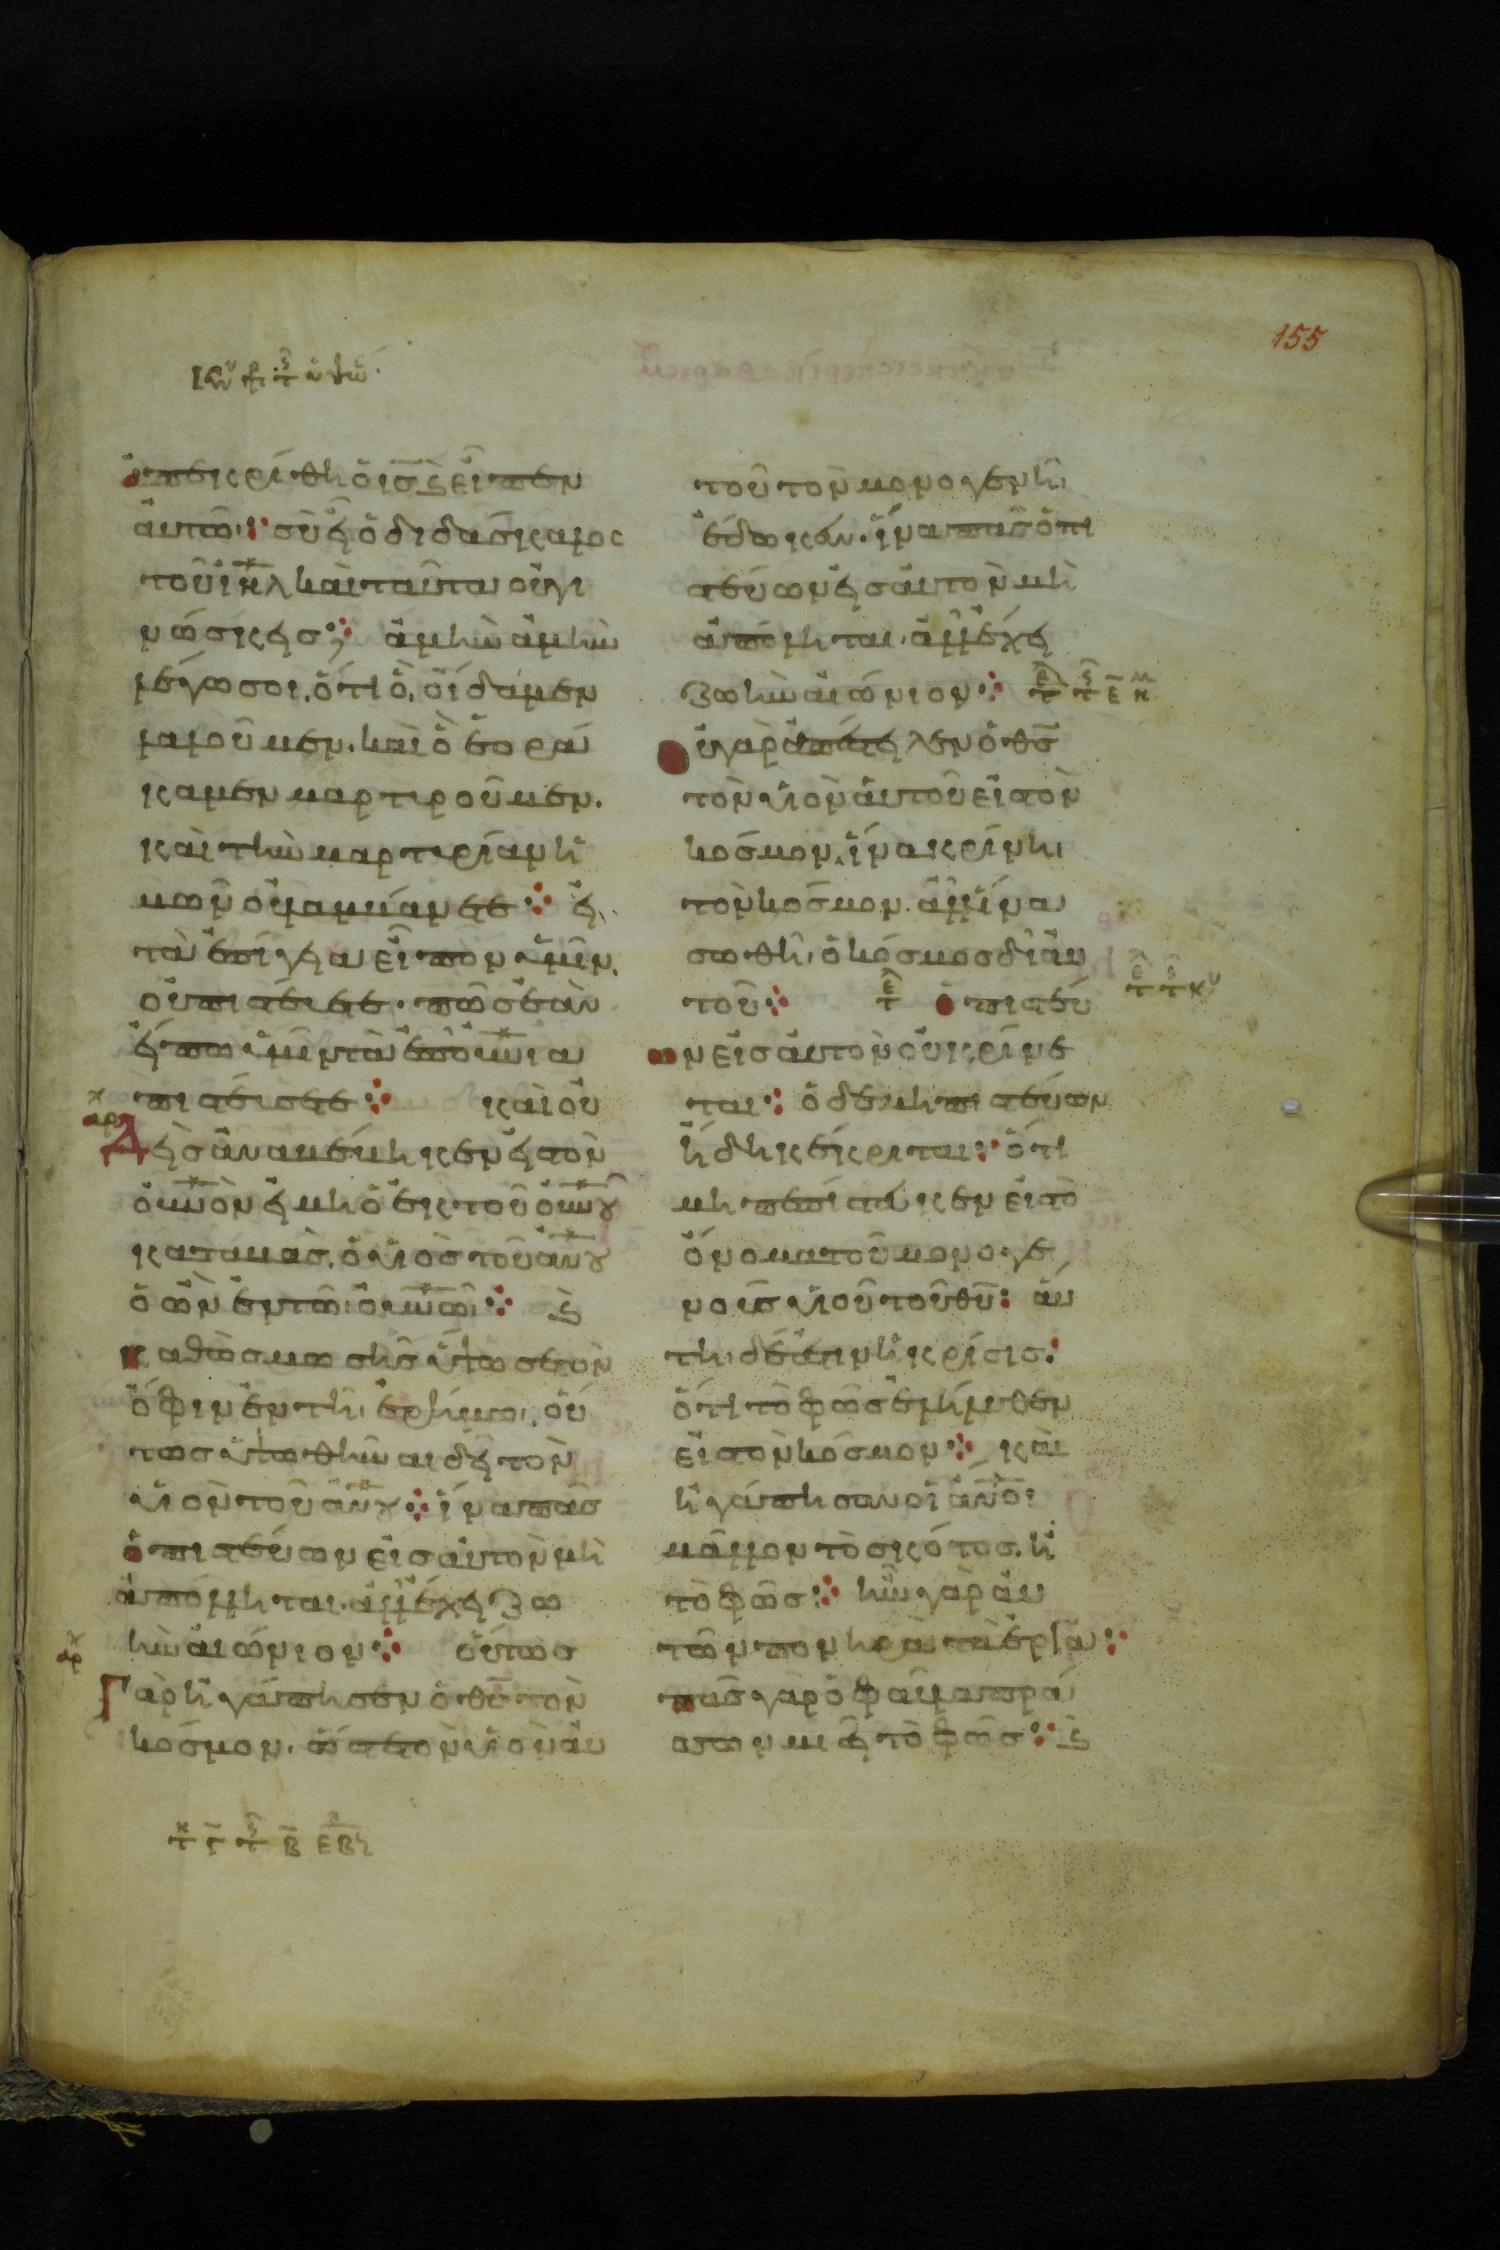 155
ἀπεκρίθη ὁ ις ϗ εἶπεν
αὐτῶ· σὺ εἶ ὁ διδάσκαλος
τοῦ ιηλ καὶ ταῦτα οὐ γι
νώσκεις; ἀμὴν ἀμὴν
λέγω σοι, ὅτι ὃ οἴδαμεν
λαλοῦμεν· καὶ ὃ ἑορά
καμεν μαρτυροῦμεν·
καὶ τὴν μαρτυρίαν ἡ
μῶν οὐ λαμβάνετε· εἰ
τὰ ἐπίγεια εἶπον ὑμῖν,
οὐ πιστεύετε· πῶς ἐὰν
εἴπω ὑμῖν τὰ ἐπουνια
πιστεύσετε· καὶ οὐ
αρχ
Δεὶς ἀναβέβηκεν εἰς τὸν
οὐνὸν εἰ μὴ ὁ ἐκ τοῦ οὐνου
καταβὰς, ὁ υἱὸς τοῦ ανου
ὁ ὢν ἐν τῶ οὐνῶ· ϗ
καθὼς μωσῆς ὕψωσε τὸν
ὄφιν ἐν τῆ ἐρήμω, οὕ
τως ὑψωθῆναι δεῖ τὸν
υἱὸν τοῦ ανου· ἵνα πᾶς
ὁ πιστεύων εἰς αὐτὸν μὴ
ἀπόληται· ἀλλ ἔχει ζω
ὴν αἰώνιον· οὕτως
αρχ
Γὰρ ἠγάπησεν ὁ θς τὸν
κόσμον· ὥστε τὸν υἱὸν αὐ
τοῦ τὸν μονογενῆ
ἔδωκεν· ἵνα πᾶς ὁ πι
στεύων εἰς αὐτὸν μὴ
ἀπόληται· ἀλλ ἔχει
ζωὴν αἰώνιον·
οὐ γὰρ ἀπέστειλεν ὁ θς
τὸν υἱὸν αὐτοῦ εἰς τὸν
κόσμον, ἵνα κρίνη
τὸν κόσμον· ἀλλ ἵνα
σωθῆ ὁ κόσμος δι αὐ
τοῦ· ὁ πιστεύ
ων εἰς αὐτὸν οὐ κρίνε
ται· ὁ δὲ μὴ πιστεύων
ἤδη κέκριται· ὅτι
μὴ πεπίστευκεν εἰς τὸ
ὄνομα τοῦ μονογε
νοῦς υἱοῦ τοῦ θυ· αὕ
τη δέ ἐστιν ἡ κρίσις·
ὅτι τὸ φῶς ἐλήλυθεν
εἰς τὸν κόσμον· καὶ
ἠγάπησαν οἱ ανοι
μᾶλλον τὸ σκότος, ἢ
τὸ φῶς· ἦν γὰρ αὐ
τῶν πονηρὰ τὰ ἔργα·
πᾶς γὰρ ὁ φαῦλα πρά
σσων μισεῖ τὸ φῶς· ϗ